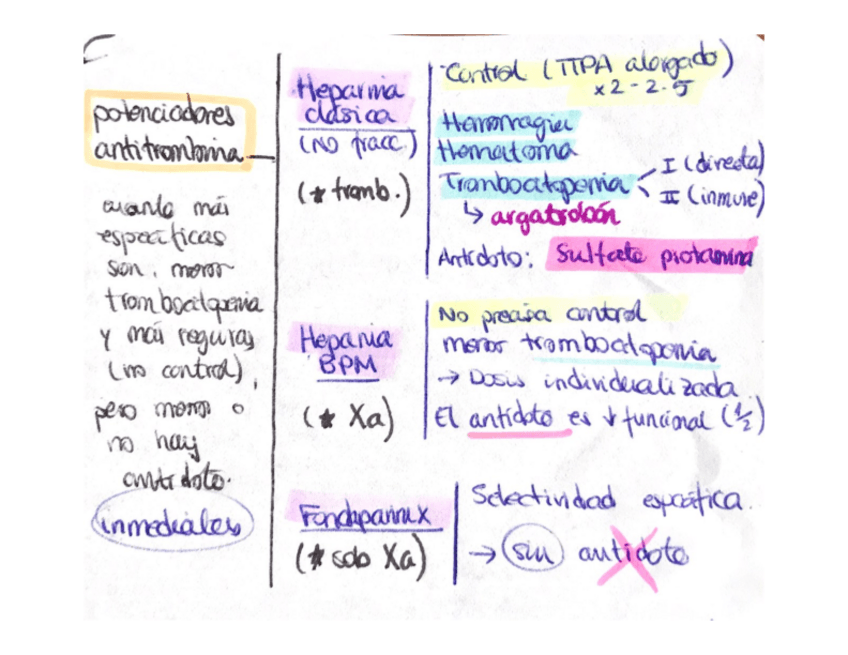 potenciadores
antitrombina
cuanto más
específicas
son, menor
trombocitopenia
y más seguras
(no control),
pero menor o
no hay
antídoto.
inmediales
Heparina
clásica
(NO fracc.)
(* tromb.)
Control (TTPA alargado)
x2 - 2.5
Hemorragia
Hematoma
Trombocitopenia
I (directa)
II (inmune)
↳ argatrobán
Antídoto: Sulfato protamina
Heparina
BPM
(* Xa)
No precisa control
menor trombocitopenia
→ Dosis individualizada
El antídoto es ↓ funcional (1/2)
Fondaparinux
(* solo Xa)
Selectividad específica.
→ sin antídoto